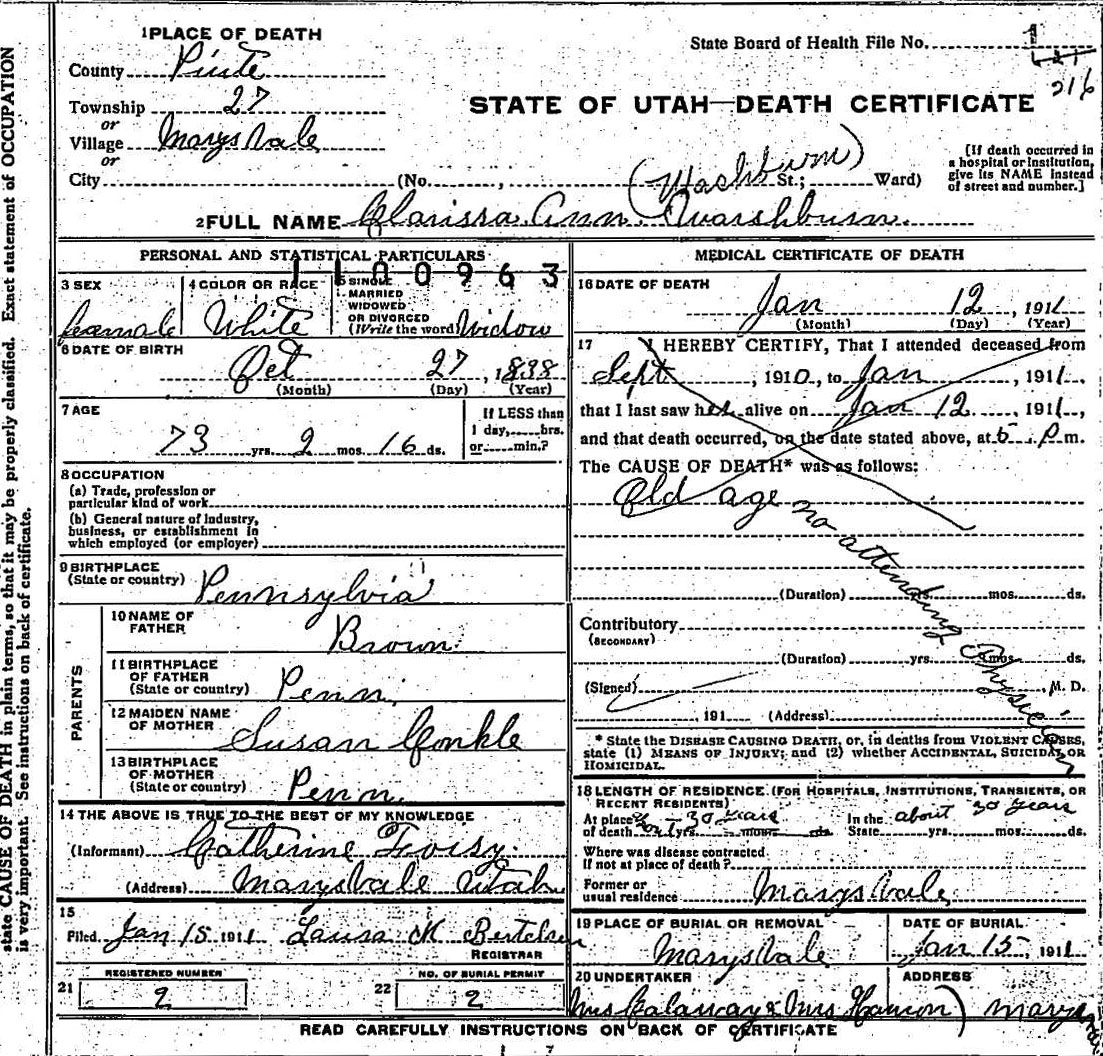 1 PLACE OF DEATH
State Board of Health File No. 1
216
County Piute
Township 27
or
Village Marysvale
or
STATE OF UTAH—DEATH CERTIFICATE
[If death occurred in a hospital or institution, give its NAME instead of street and number.]
City (No. , St.; Ward)
(Washburn)
2 FULL NAME Clarissa Ann Warshburn.
PERSONAL AND STATISTICAL PARTICULARS
1100963
3 SEX
feamale
4 COLOR OR RACE
White
5 SINGLE
MARRIED
WIDOWED
OR DIVORCED
(Write the word) Widow
6 DATE OF BIRTH
Oct 27, 1838
(Month) (Day) (Year)
7 AGE
73 yrs. 2 mos. 16 ds.
If LESS than
1 day, hrs.
or min.?
8 OCCUPATION
(a) Trade, profession or
particular kind of work
(b) General nature of industry,
business, or establishment in
which employed (or employer)
9 BIRTHPLACE
(State or country) Pennsylvia
PARENTS
10 NAME OF
FATHER Brown.
11 BIRTHPLACE
OF FATHER
(State or country) Penn.
12 MAIDEN NAME
OF MOTHER Susan Conkle
13 BIRTHPLACE
OF MOTHER
(State or country) Penn.
14 THE ABOVE IS TRUE TO THE BEST OF MY KNOWLEDGE
(Informant) Catherine
(Address) Marysvale Utah
15
Filed Jan 15 1911 Laura K Bertelsen
REGISTRAR
REGISTERED NUMBER
21 2
NO. OF BURIAL PERMIT
22 2
MEDICAL CERTIFICATE OF DEATH
16 DATE OF DEATH
Jan 12, 1911
(Month) (Day) (Year)
17 I HEREBY CERTIFY, That I attended deceased from
Sept, 1910, to Jan, 1911,
that I last saw her alive on Jan 12, 1911,
and that death occurred, on the date stated above, at 5 P.m.
The CAUSE OF DEATH* was as follows:
Old age
no attending Physician
(Duration) yrs. mos. ds.
Contributory
(SECONDARY)
(Duration) yrs. mos. ds.
(Signed) , M. D.
, 191 (Address)
* State the DISEASE CAUSING DEATH, or, in deaths from VIOLENT CAUSES,
state (1) MEANS OF INJURY; and (2) whether ACCIDENTAL, SUICIDAL, OR
HOMICIDAL.
18 LENGTH OF RESIDENCE (FOR HOSPITALS, INSTITUTIONS, TRANSIENTS, OR
RECENT RESIDENTS)
At place
of death 30 years mos. ds. In the State about 30 years yrs. mos. ds.
Where was disease contracted
If not at place of death?
Former or
usual residence Marysvale
19 PLACE OF BURIAL OR REMOVAL
Marysvale
DATE OF BURIAL
Jan 15, 1911
20 UNDERTAKER
Mrs Calaway & Mrs
ADDRESS
READ CAREFULLY INSTRUCTIONS ON BACK OF CERTIFICATE
state CAUSE OF DEATH in plain terms, so that it may be properly classified. Exact statement of OCCUPATION
is very important. See instructions on back of certificate.